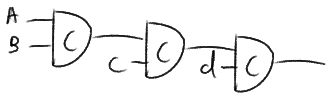 A
B C
C C
d C